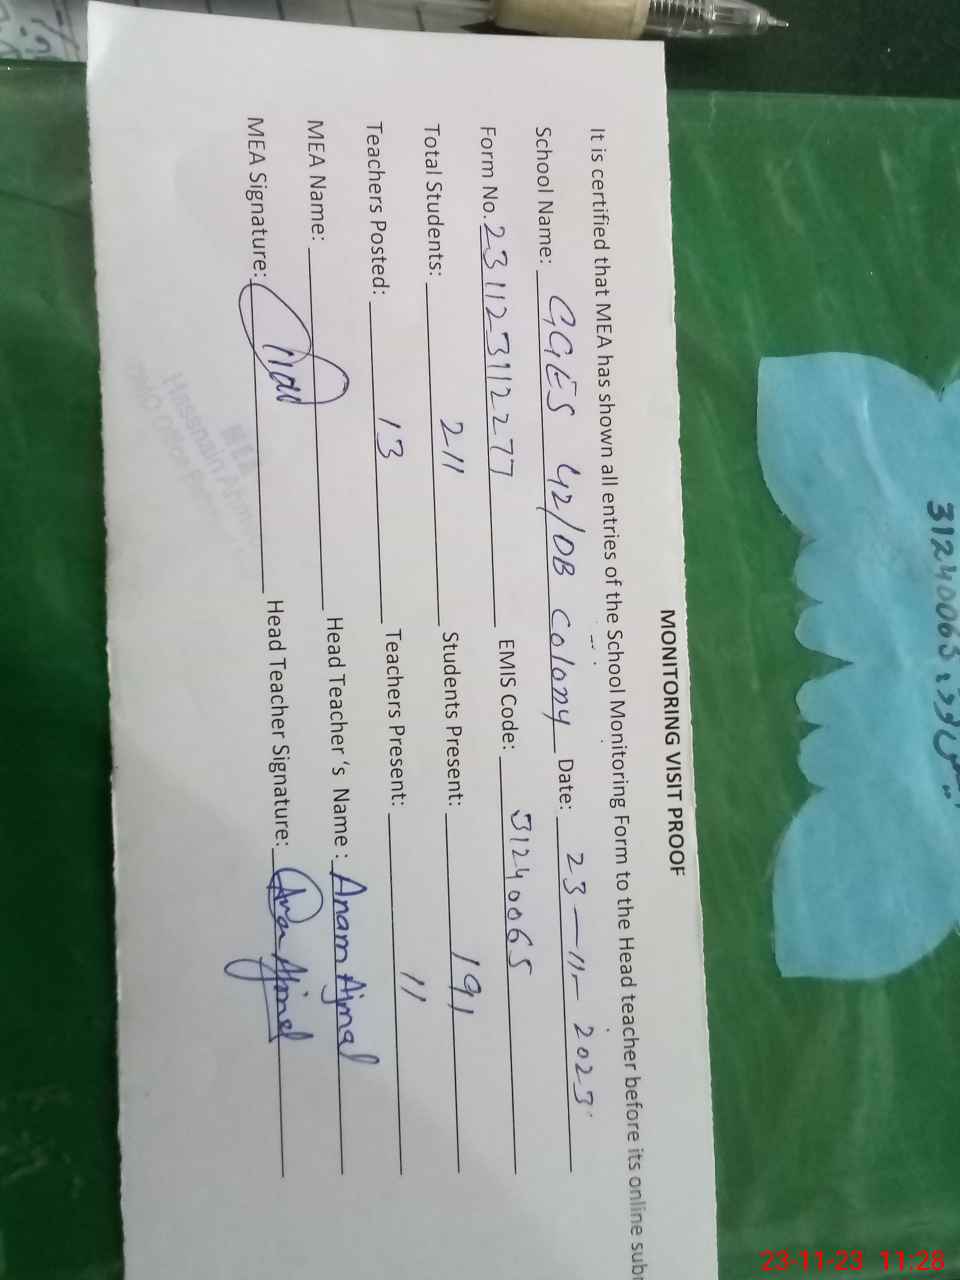 MONITORING VISIT PROOF
It is certified that MEA has shown all entries of the School Monitoring Form to the Head teacher before its online subm
School Name: GGES 42/DB Colony Date: 23-11-2023
Form No. 231123112277 EMIS Code: 31240065
Total Students: 211 Students Present: 191
Teachers Posted: 13 Teachers Present: 11
MEA Name: Head Teacher 's Name: Anam Ajmal
MEA Signature: Head Teacher Signature: Anam Ajmal
Hassnain
31240065
23-11-23 11:28